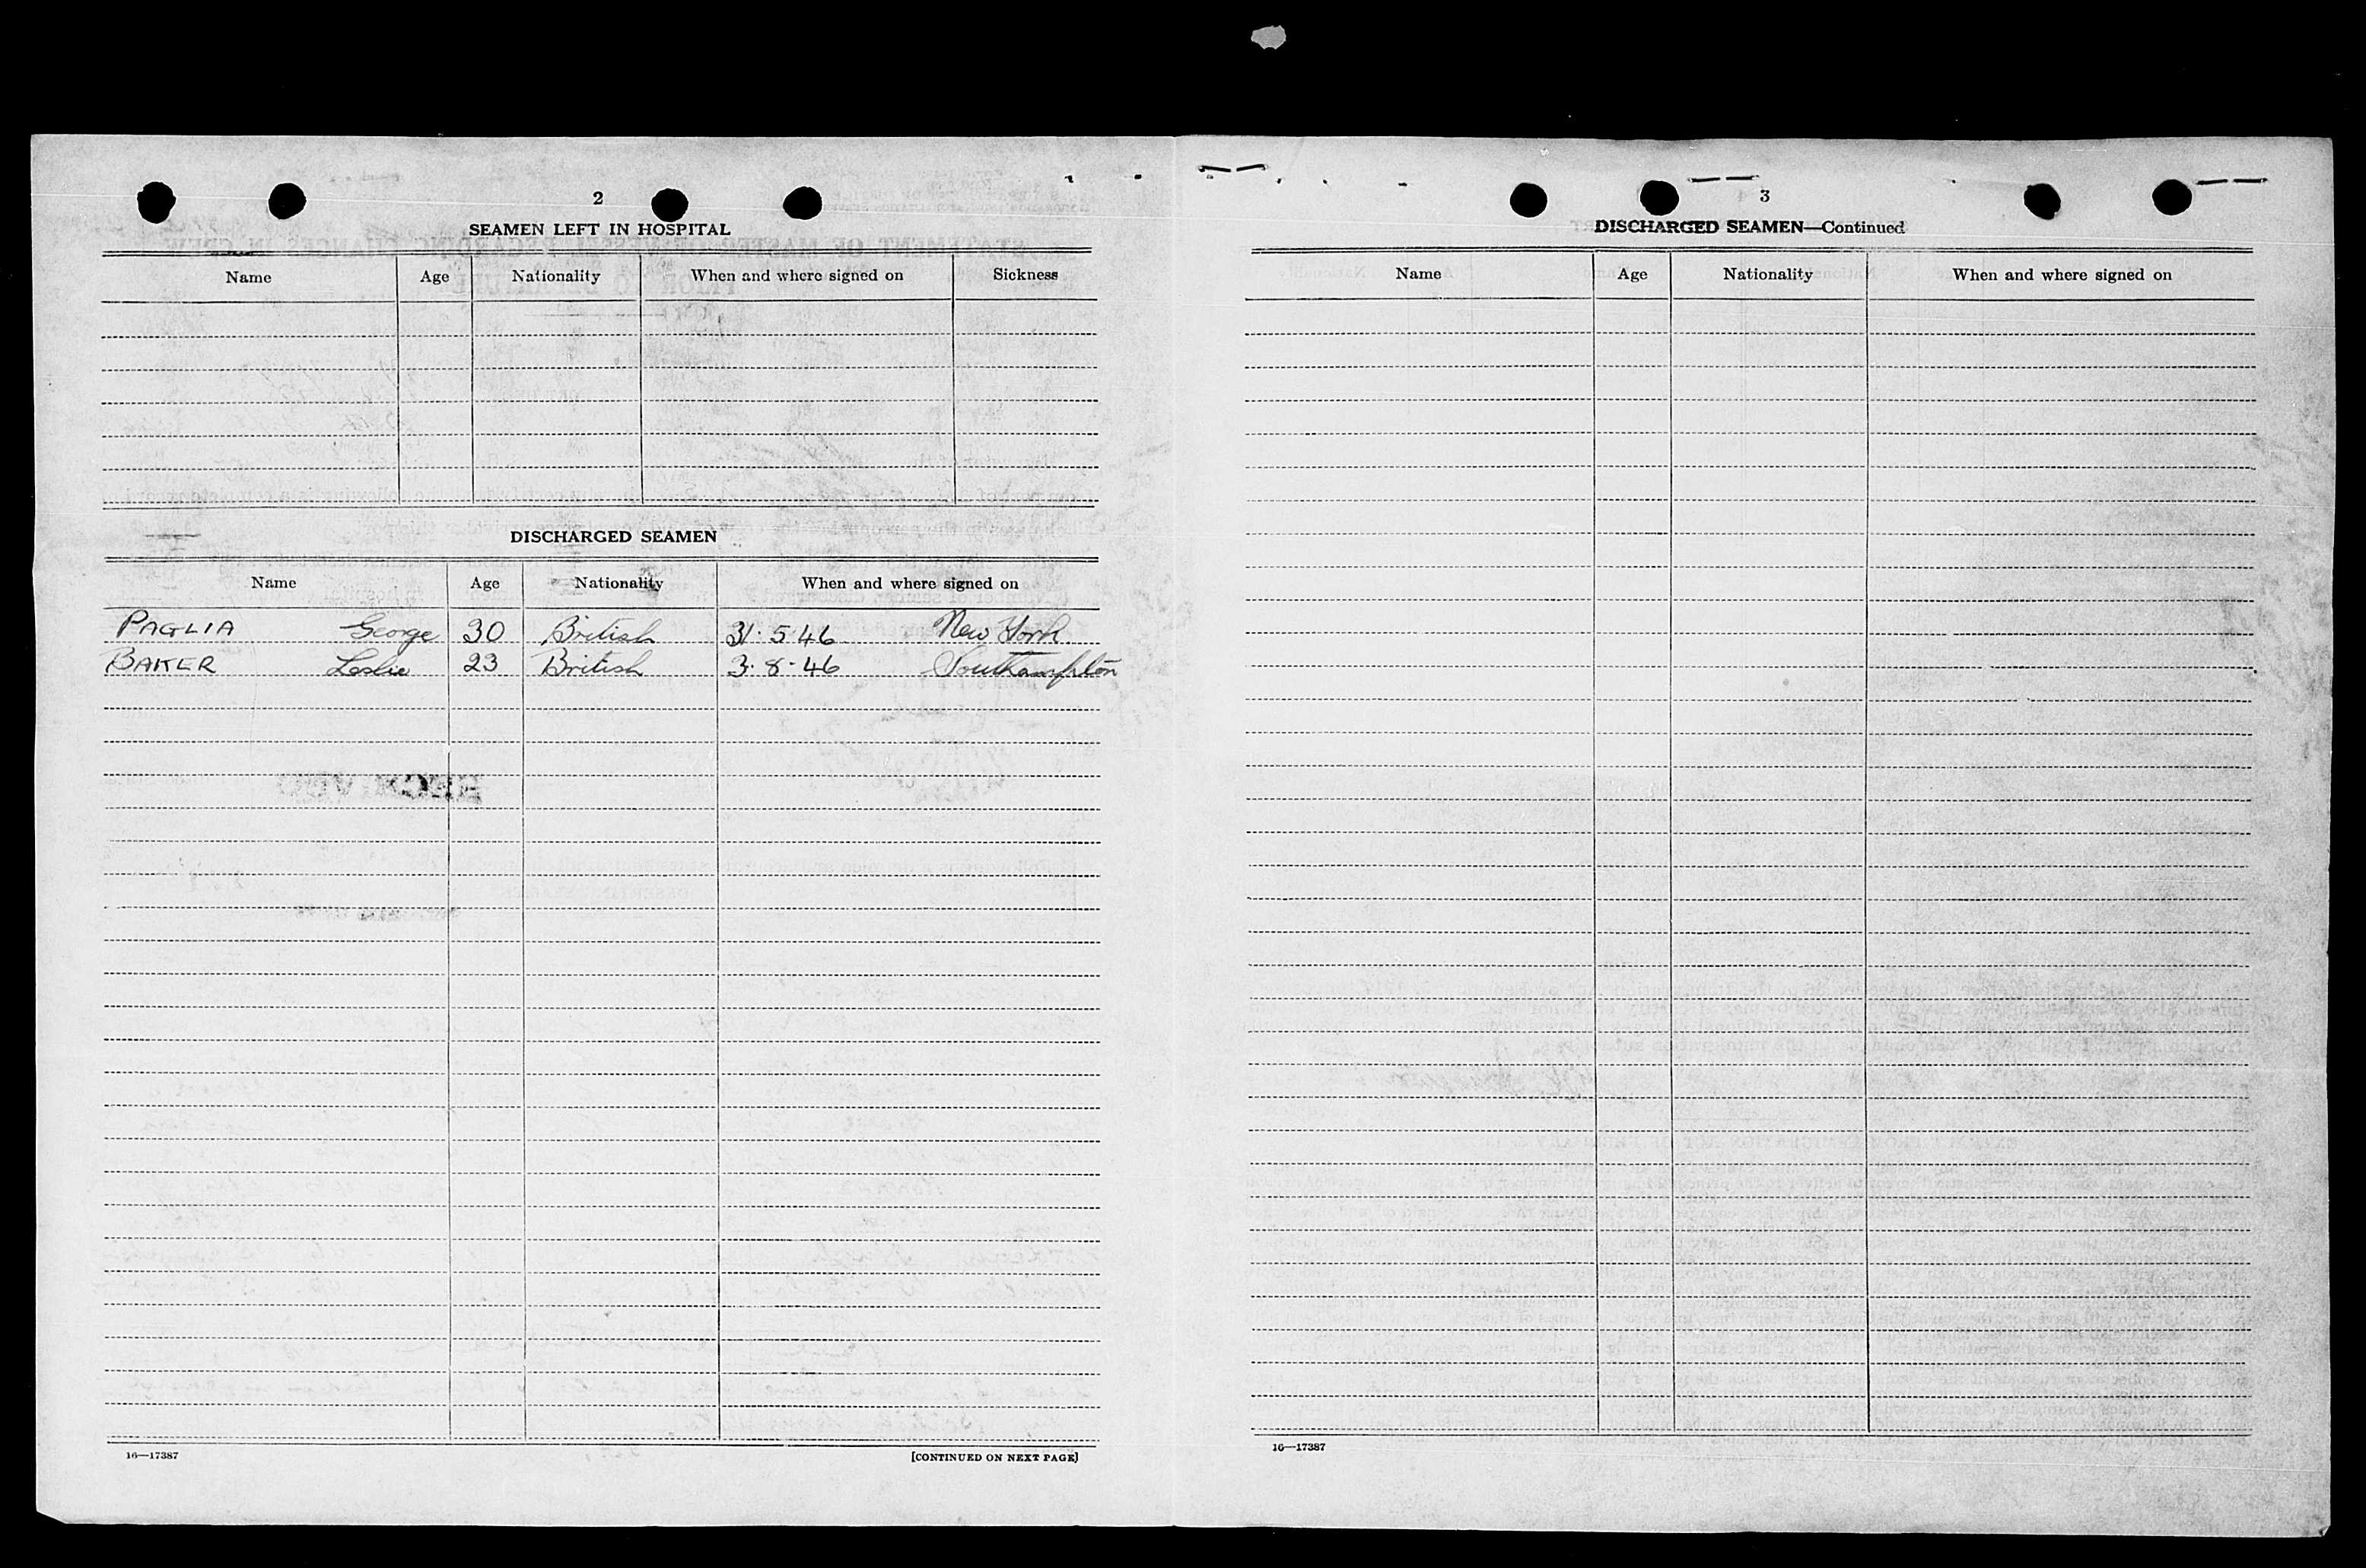 2
SEAMEN LEFT IN HOSPITAL
Name Age Nationality When and where signed on Sickness
DISCHARGED SEAMEN
Name Age Nationality When and where signed on
PAGLIA George 30 British 31·5·46 New York
BAKER Leslie 23 British 3·8·46 Southampton
16—17387 [CONTINUED ON NEXT PAGE]
3
DISCHARGED SEAMEN—Continued
Name Age Nationality When and where signed on
16—17387